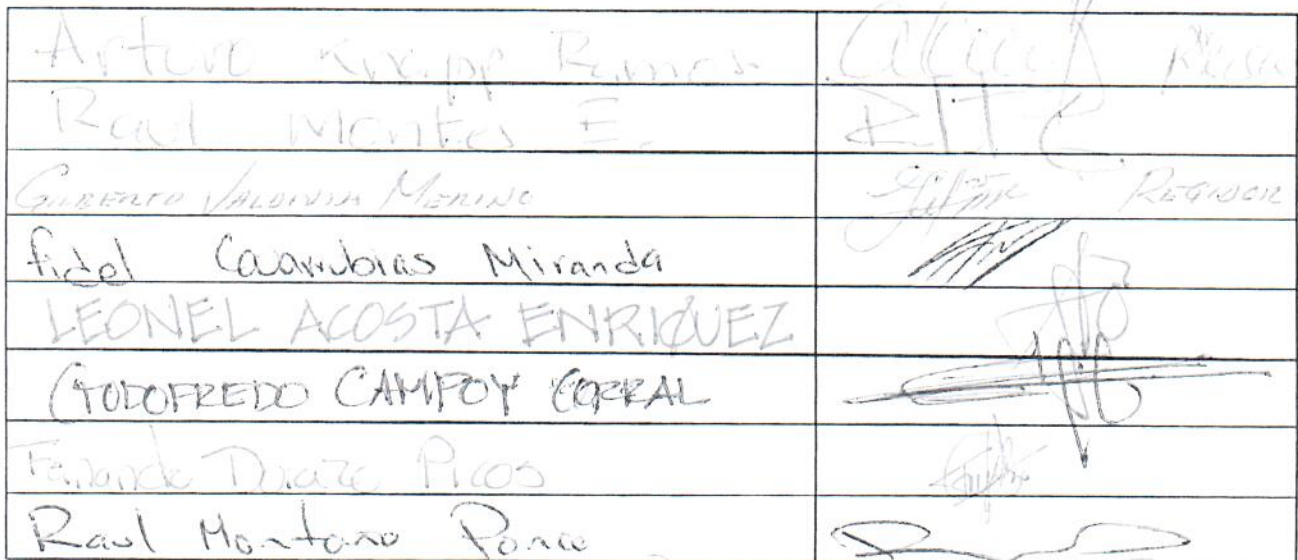 Arturo Knapp Ramos
Raul Montes E.
GILBERTO VALDIVIA MERINO REGIDOR
fidel Covarrubias Miranda
LEONEL ACOSTA ENRIQUEZ
GODOFREDO CAMPOY CORRAL
Fernando Duraze Picos
Raul Montano Ponce